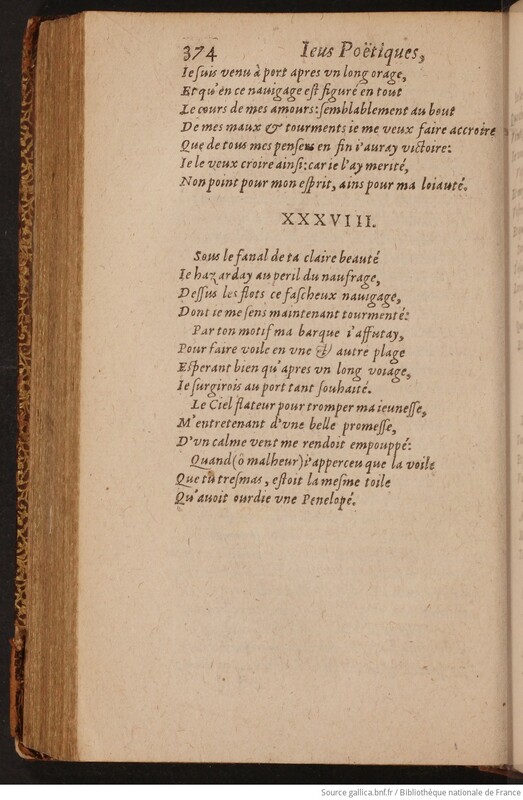 374 Ieus Poëtiques,
Ie suis venu à port apres vn long orage,
Et qu'en ce nauigage est figuré en tout
Le cours de mes amours: semblablement au bout
De mes maux & tourments ie me veux faire accroire
Que de tous mes pensers en fin i'auray victoire:
Ie le veux croire ainsi: car ie l'ay merité,
Non point pour mon esprit, ains pour ma loiauté.
XXXVIII.
Sous le fanal de ta claire beauté
Ie hazarday au peril du naufrage,
Dessus les flots ce fascheux nauigage,
Dont ie me sens maintenant tourmenté:
Par ton motif ma barque i'affutay,
Pour faire voile en vne & autre plage
Esperant bien qu'apres vn long voiage,
Ie surgirois au port tant souhaité.
Le Ciel flateur pour tromper ma ieunesse,
M'entretenant d'vne belle promesse,
D'vn calme vent me rendoit empouppé:
Quand (ô malheur) i'apperceu que la voile
Que tu tresmas, estoit la mesme toile
Qu'auoit ourdie vne Penelopé.
Source gallica.bnf.fr / Bibliothèque nationale de France